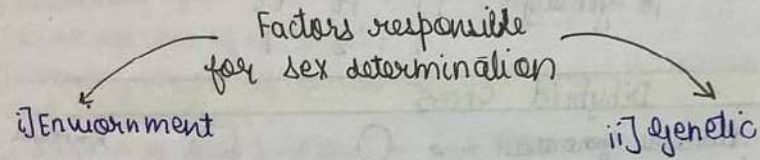 Factors responsible
for sex determination
i] Enviornment
ii] Genetic